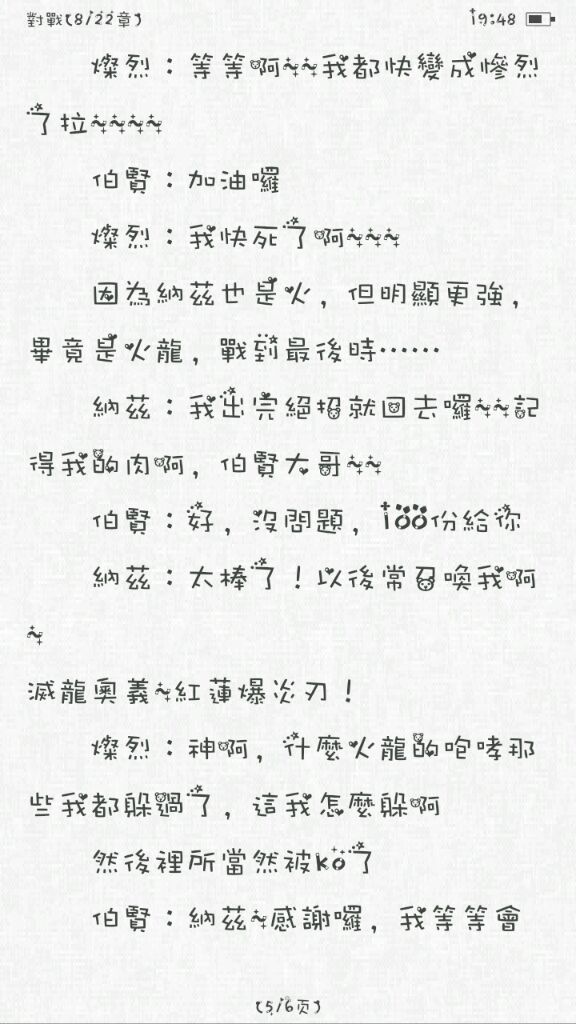 對戰(8/22章)
19:48
燦烈：等等啊~~我都快變成慘烈
了拉~~~~
伯賢：加油囉
燦烈：我快死了啊~~~
因為納茲也是火，但明顯更強，
畢竟是火龍，戰到最後時……
納茲：我出完絕招就回去囉~~記
得我的肉啊，伯賢大哥~~
伯賢：好，沒問題，100份給你
納茲：太棒了！以後常召喚我啊
~
滅龍奧義~紅蓮爆炎刃！
燦烈：神啊，什麼火龍的咆哮那
些我都躲過了，這我怎麼躲啊
然後裡所當然被ko了
伯賢：納茲~感謝囉，我等等會
(5/6页)